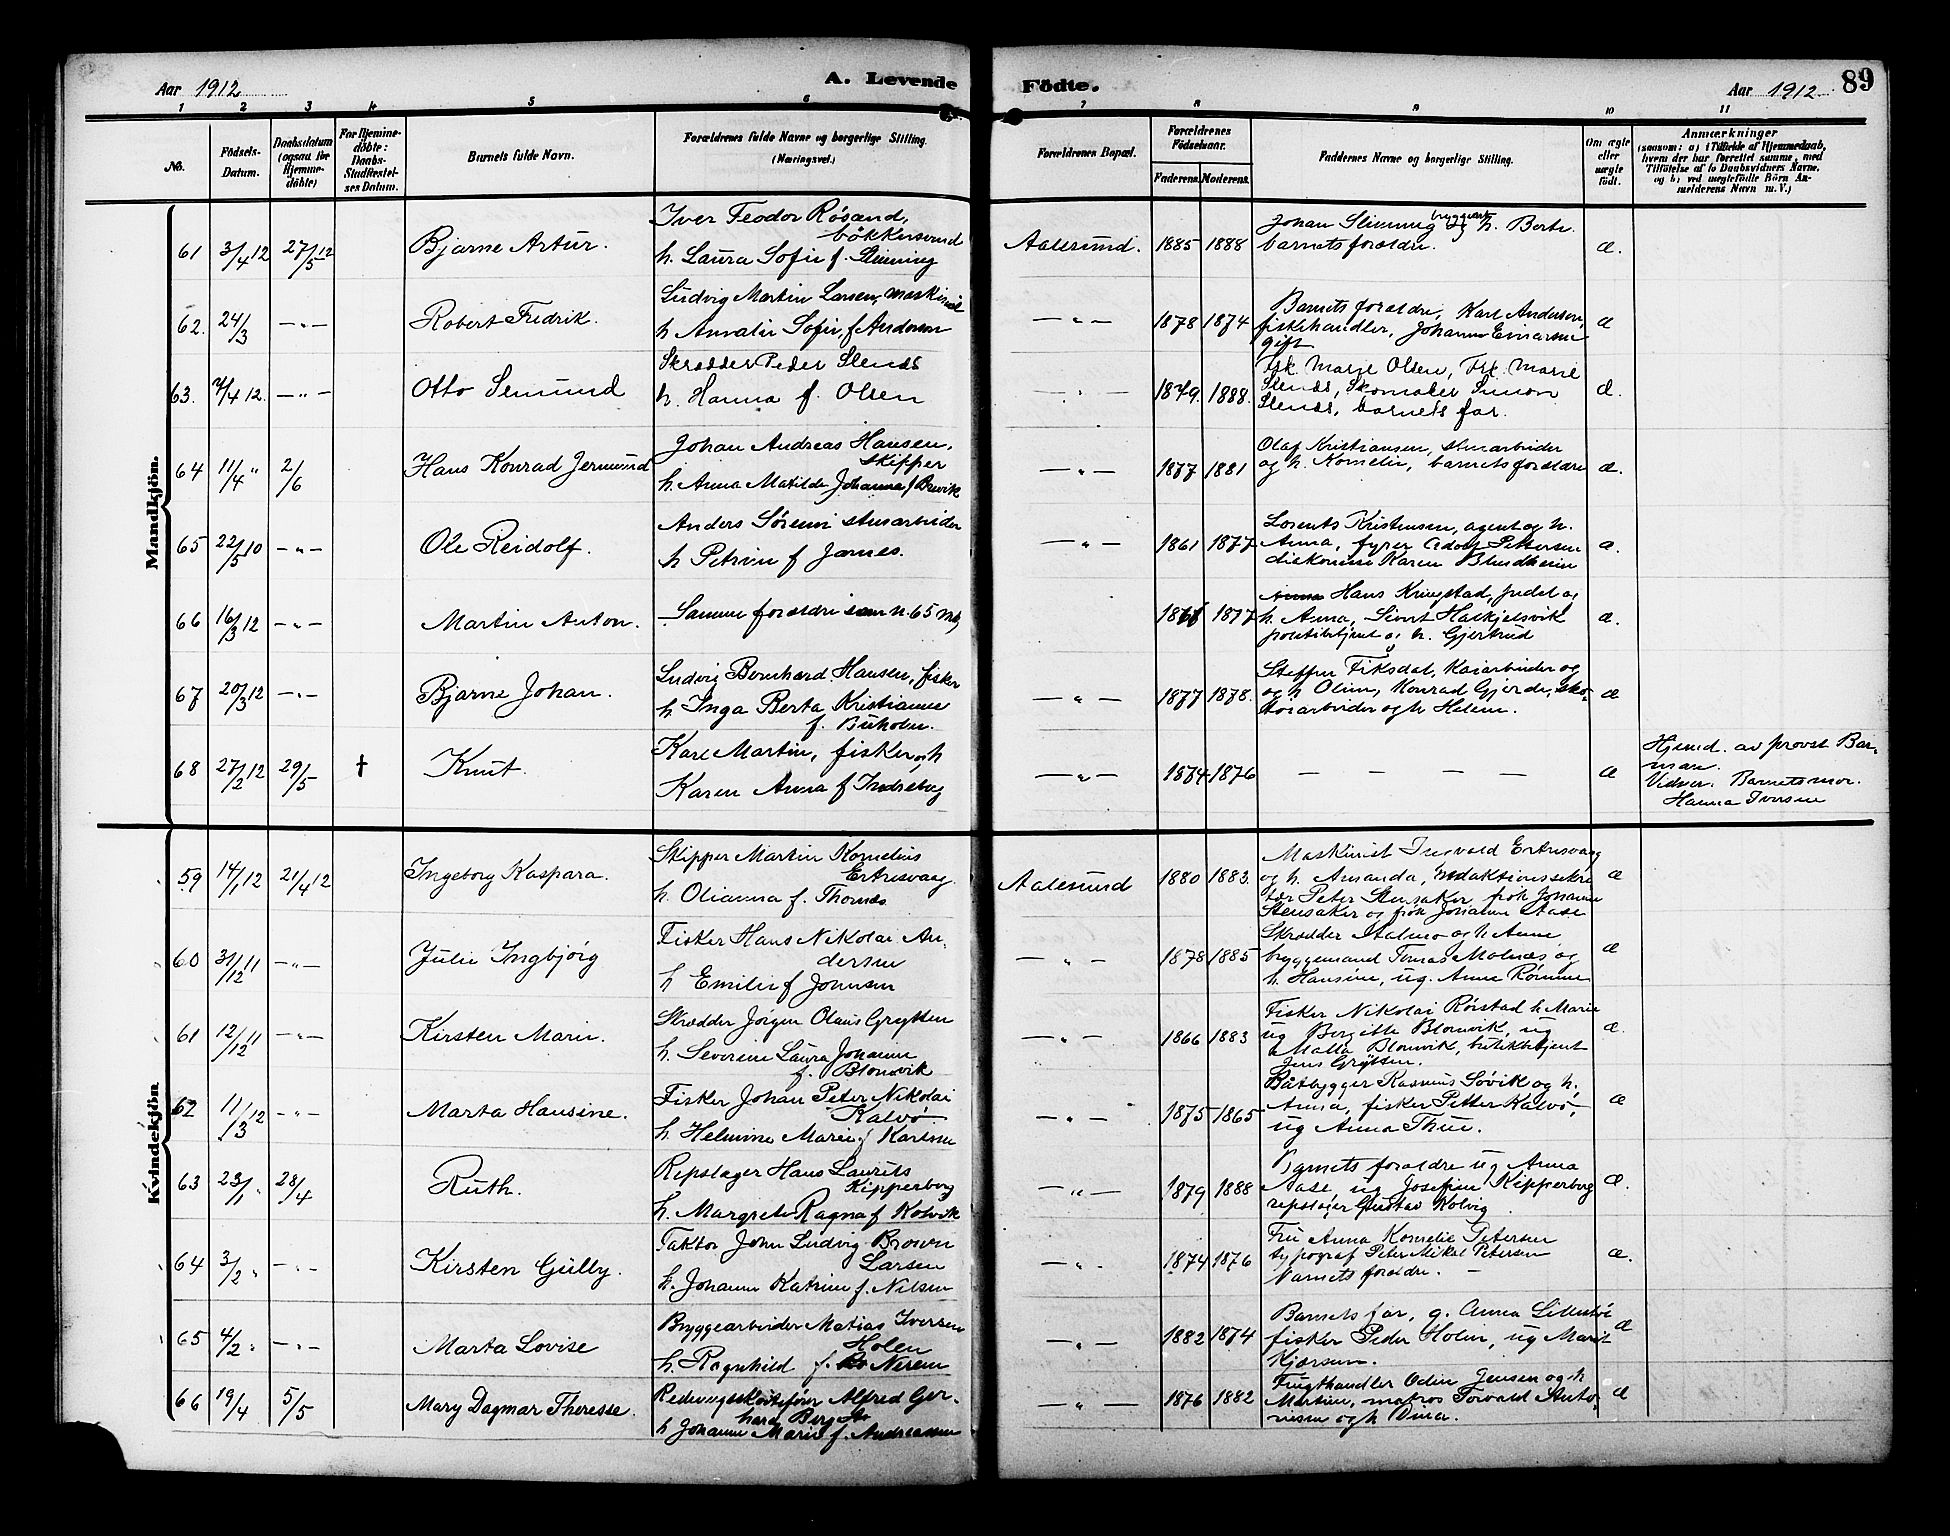 Aar 1912
A. Levende
Födte.
Aar 1912
89
1 2 3 4 5 6 7 8 9 10 11
No.
Födsels-Datum.
Daabsdatum (ogsaa for Hjemmedöbte)
For Hjemmedöbte: Daabs-Stadfæstelses Datum.
Barnets fulde Navn.
Forældrenes fulde Navne og borgerlige Stilling. (Næringsvei.)
Forældrenes Bopæl.
Forældrenes Födselsaar.
Faderens. Moderens.
Faddernes Navne og borgerlige Stilling.
Om ægte eller uægte födt.
Anmærkninger
(saasom: a) i Tilfælde af Hjemmedaab, hvem der har forrettet samme, med Tilföielse af to Daabsvidners Navne, og b) ved uægtefödte Börn Anmelderens Navn m. V.)
Mandkjön.
61 3/4 12 27/5 12 Bjarne Artur.
Iver Feodor Røsand,
bøkkersvend
h. Laura Sofie f. Slinning
Aalesund. 1885 1888
Johan Slinning bryggearb. og h. Berte
barnets forældre. æ.
62. 24/3 — " — Robert Fredrik.
Ludvig Martin Larsen, maskinist
h Amalie Sofie, f Andersen
— " — 1878 1874
Barnets forældre, Karl Andersen,
fiskehandler, Johanne Einarsen
gift æ
63. 7/4 12. — " — Otto Semund
Skrædder Peder Slenes
h. Hanna f. Olsen
— " — 1879. 1888.
Frk. Marie Olsen, Frk. Marie
Slenes, Skomaker Simon
Slenes, barnets far. æ.
64 11/4 " 2/6 Hans Konrad Jermund
Johan Andreas Hansen,
skipper
h. Anna Matilde Johanna f Brevik
— " — 1877 1881
Olaf Kristiansen, stuearbeider
og h. Kornelie, barnets forældre æ.
65 22/5 10 — " — Ole Reidolf.
Anders Sørensen stuearbeider
h Petrine f James.
— " — 1861 1877
Lorents Kristensen, agent og h.
Anna, fyrer Adolf Pettersen
diakonisse Karen Blindheim æ.
66 16/3 12 — " — Martin Anton.
Samme forældre som n. 65 Mk
1861 1877
Hans Kringstad, pedel og
h. Anna, Sivert Hatkjelsvik
politibetjent og h. Gjertrud æ.
67 20/3 12 — " — Bjarne Johan.
Ludvig Bernhard Hansen, fisker
h Inga Berta Kristianne
f. Buholm.
— " — 1877 1878.
Steffen Fiksdal, Kaiarbeider og
og h Oline, Konrad Gjerde, sko-
tøiarbeider og h Helene. æ
68 27/2 12 29/5 † Knut.
Karl Martin, fisker og h
Karen Anna f Indrebøg
— " — 1874 1876
— — — — æ
Hjemd. av provst Bar-
man.
Vidner. Barnets mor.
Hanna Iversen
Kvindekjön
59 14/1 12 21/4 12 Ingeborg Kaspara.
Skipper Martin Kornelius
Ertresvaag.
h. Olianna f. Thornes
Aalesund 1880 1883.
Maskinist Ingvald Ertresvaag
og h. Amanda, redaktionssekre
tær Peter Stensaker frøk Johanne
Stensaker og frøk Johanne Aase æ
60 31/12 11 — " — Julie Ingbjørg
Fisker Hans Nikolai An-
dersen
h Emilie f Johnsen
— " — 1878 1885
Skrædder Malmo og h Anne
bryggemand Tomas Molnes og
h. Hansine, ug. Anne Rømme æ
61 12/12 11 — " — Kirsten Marie.
Skrædder Jørgen Olaus Grytten
h. Severine Laura Johanne
f. Blomvik
— " — 1866 1883
Fisker Nikolai Rørstad h Marie
ug Bergitte Blomvik, ug
Malla Blomvik, butikbetjent
Jens Grytten. æ.
62 11/3 12 — " — Marta Hansine.
Fisker Johan Peter Nikolai
Kalvø
h. Helmine Marie f Karlsen
— " — 1875 1865
Båtbygger Rasmus Søvik og h.
Anna, fisker Petter Kalvø,
ug Anna Thue. æ
63 23/1 " 28/4 Ruth.
Repslager Hans Laurits
Kipperberg
h. Margrete Ragna f Kolvik
— " — 1879 1888
Barnets forældre ug Anna
Aase, ug Josefine Kipperberg
repslager Gustav Kolvig æ.
64 3/2 " — " — Kirsten Gully.
Faktor John Ludvig Brown
Larsen
h. Johanne Katrine f. Nilsen
— " . 1874 1876
Fru Anna Kornelie Petersen
typograf Peter Mikal Petersen
Barnets forældre. — æ.
65 4/2 " — " — Marta Lovise
Bryggearbeider Matias Iversen
Holen
h. Ragnhild f. Neren
— " — 1882 1874
Barnets far, g. Anna
fisker Peder Holen, ug Marit
Kjørsum. æ
66 19/4 5/5 Mary Dagmar Theresse.
Redningsskøitefører Alfred Ger-
hard Berg
h Johanne Marie f. Andreassen
— " — 1876 1882
Frugthandler Odin Jensen og h
Martine, matros Torvald Anto-
niesen og h Dina. æ